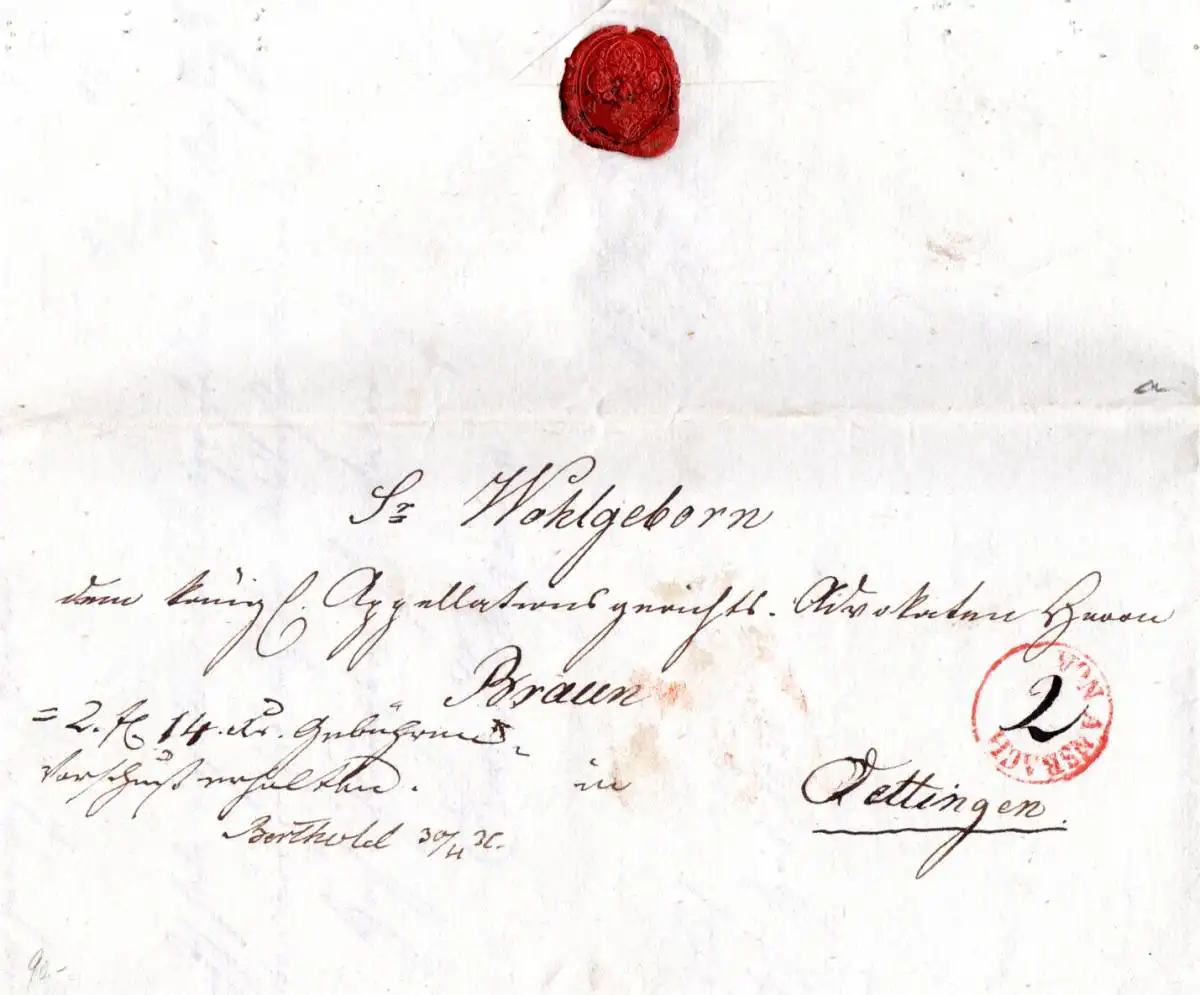 Sr Wohlgeborn
dem königl. Appellationsgerichts-Advokaten Herrn
Braun
VON ANSBACH
2
= 2. fl. 14. Xr. Gebühren-
Vorschuß erhalten.
in
Oettingen.
Berthold 30/4
90.-